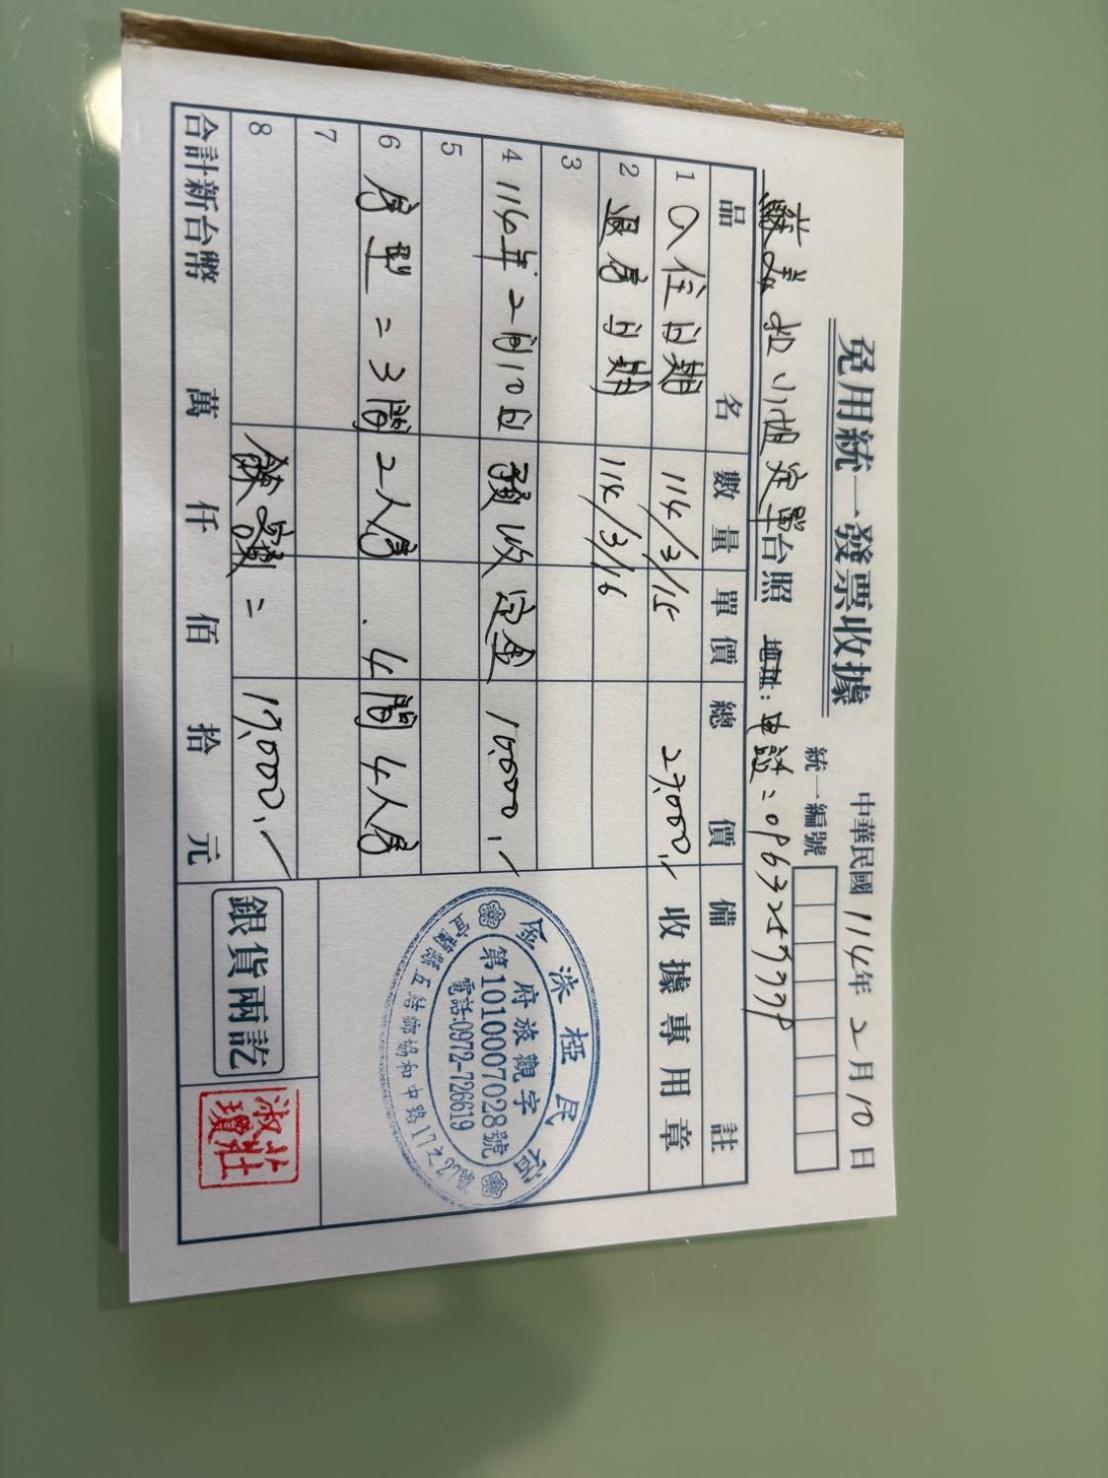 免用統一發票收據
中華民國114年2月10日
統一編號
小姐定單台照 地址:電話:
品名 數量 單價 總價 備註
1 入住日期 114/3/15 27,000,- 收據專用章
2 退房日期 114/3/16
3
4 114年2月10日預收定金 10,000,-
5
6 房型=3間2人房.4間4人房
7
8 餘額= 17,000,-
合計新台幣 萬 仟 佰 拾 元
民宿
府旅觀字
第1010007028號
電話:0972-726619
宜蘭縣五結鄉協和中路17之26號
銀貨兩訖